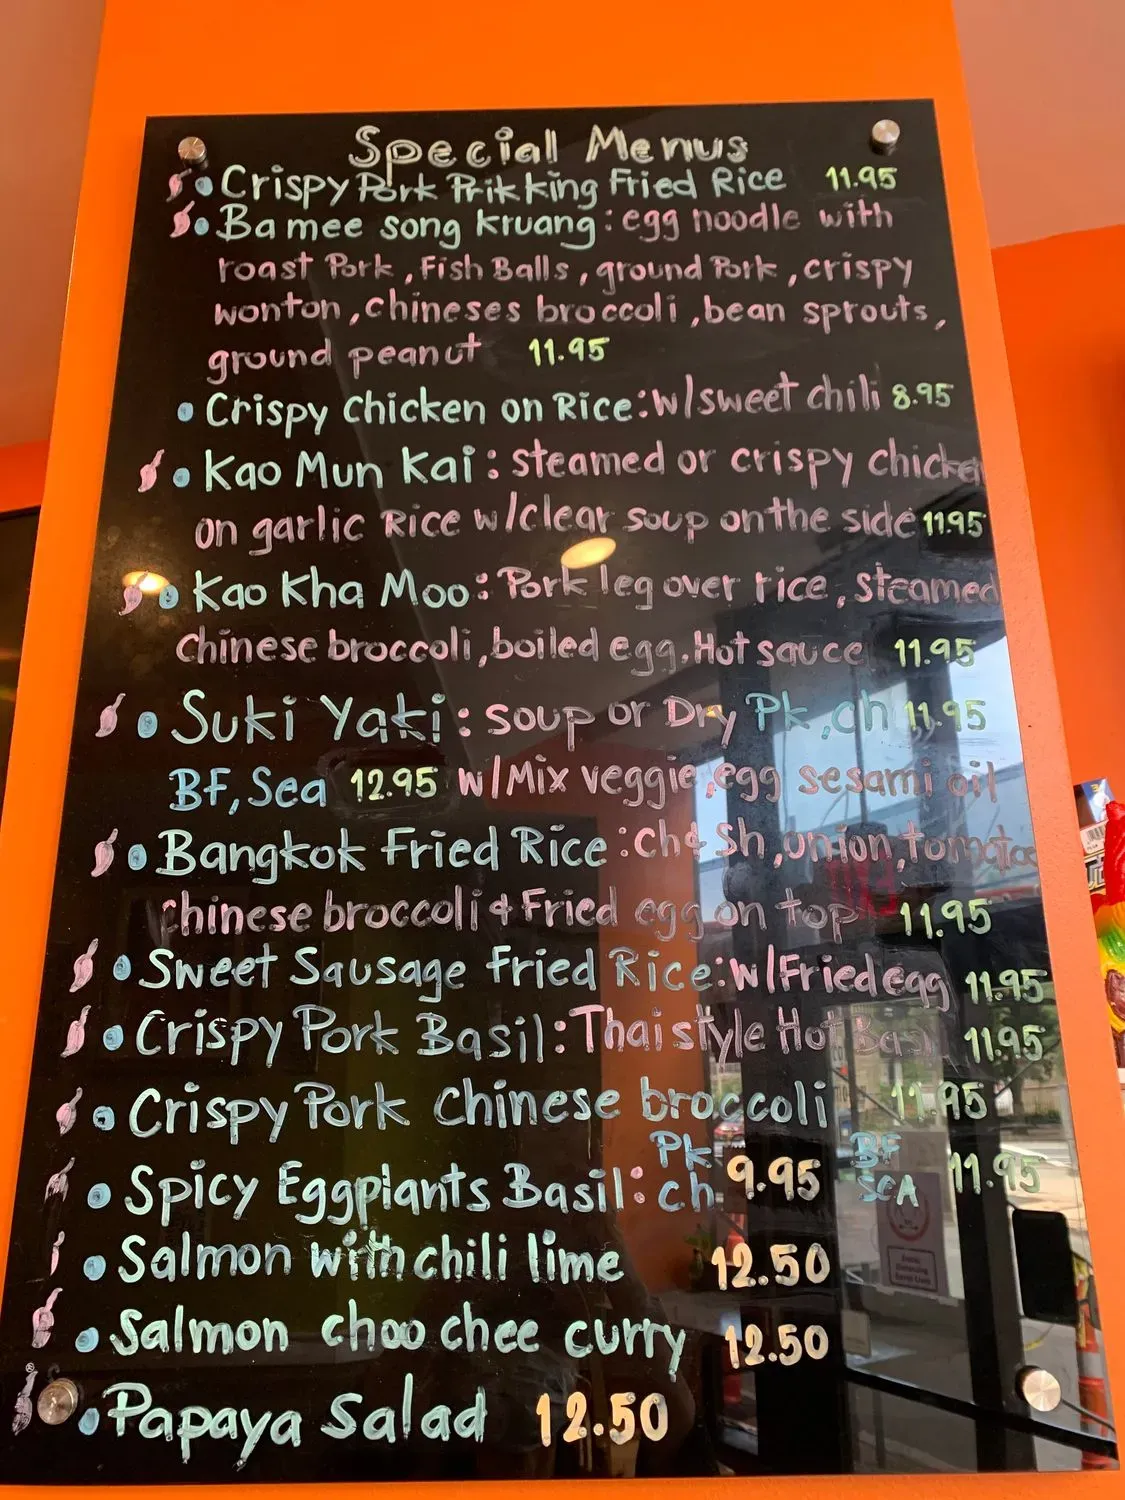 Special Menus
Crispy Pork Prik king Fried Rice 11.95
Ba mee song kruang: egg noodle with
roast Pork, Fish Balls, ground Pork, crispy
wonton, chineses broccoli, bean sprouts,
ground peanut 11.95
Crispy Chicken on Rice: w/sweet chili 8.95
Kao Mun Kai: steamed or crispy chicken
on garlic Rice w/clear soup on the side 11.95
Kao Kha Moo: Pork leg over rice, steamed
chinese broccoli, boiled egg, Hot sauce 11.95
Suki Yaki: soup or Dry Pk, ch 11.95
BF, Sea 12.95 w/Mix veggie, egg sesami oil
Bangkok Fried Rice: ch & Sh, onion, tomatoe
chinese broccoli & Fried egg on top 11.95
Sweet Sausage Fried Rice: w/Fried egg 11.95
Crispy Pork Basil: Thai style Hot Basil 11.95
Crispy Pork Chinese broccoli 11.95
Pk BF
Spicy Eggplants Basil: ch 9.95 SeA 11.95
Salmon with chili lime 12.50
Salmon choo chee curry 12.50
Papaya Salad 12.50